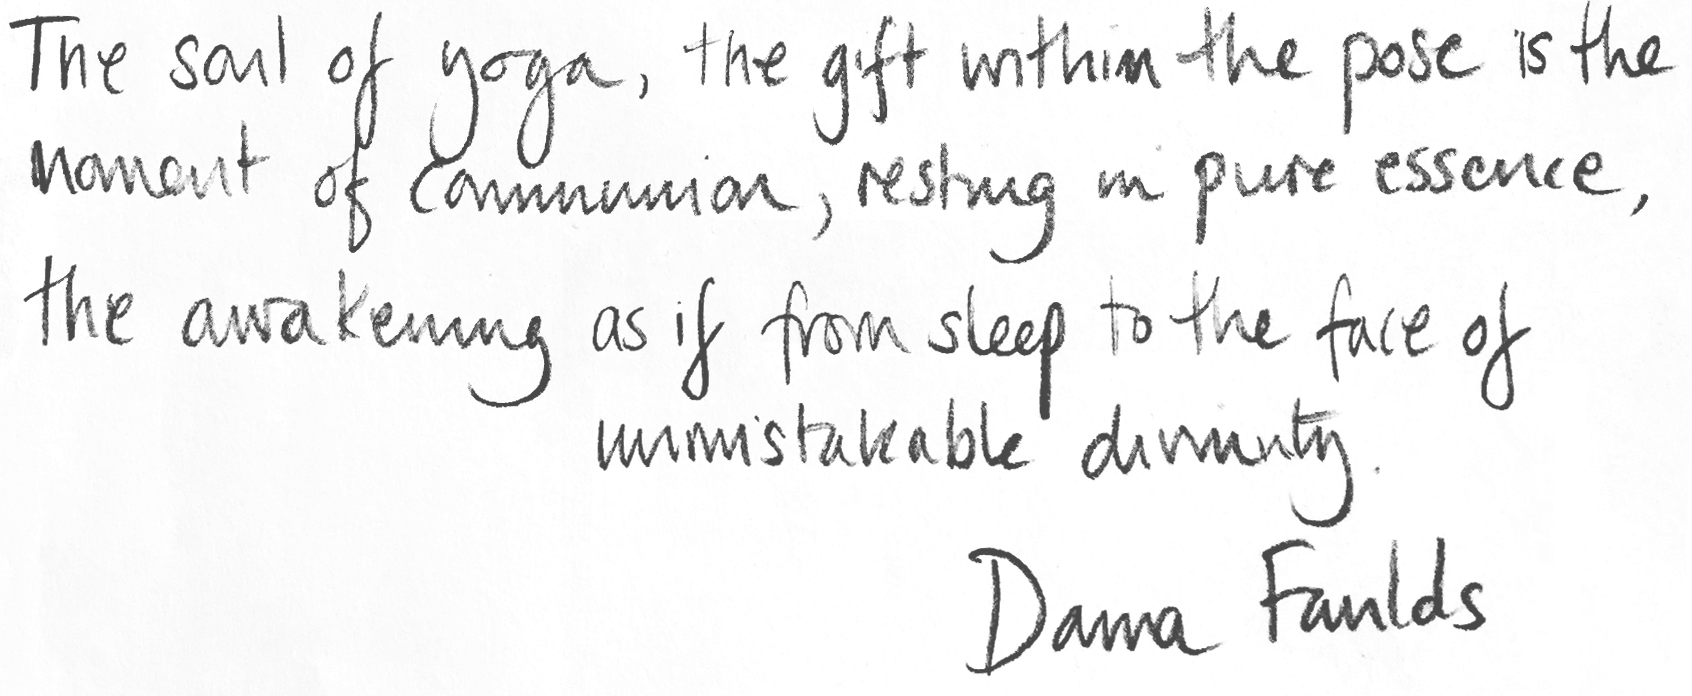 The soul of yoga, the gift within the pose is the
moment of communion, resting in pure essence,
the awakening as if from sleep to the face of
unmistakable divinity.
Danna Faulds